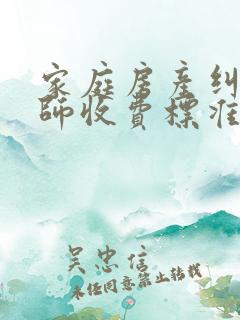 家庭房产纠
师收费标准
吴忠信
未经同意禁止转载